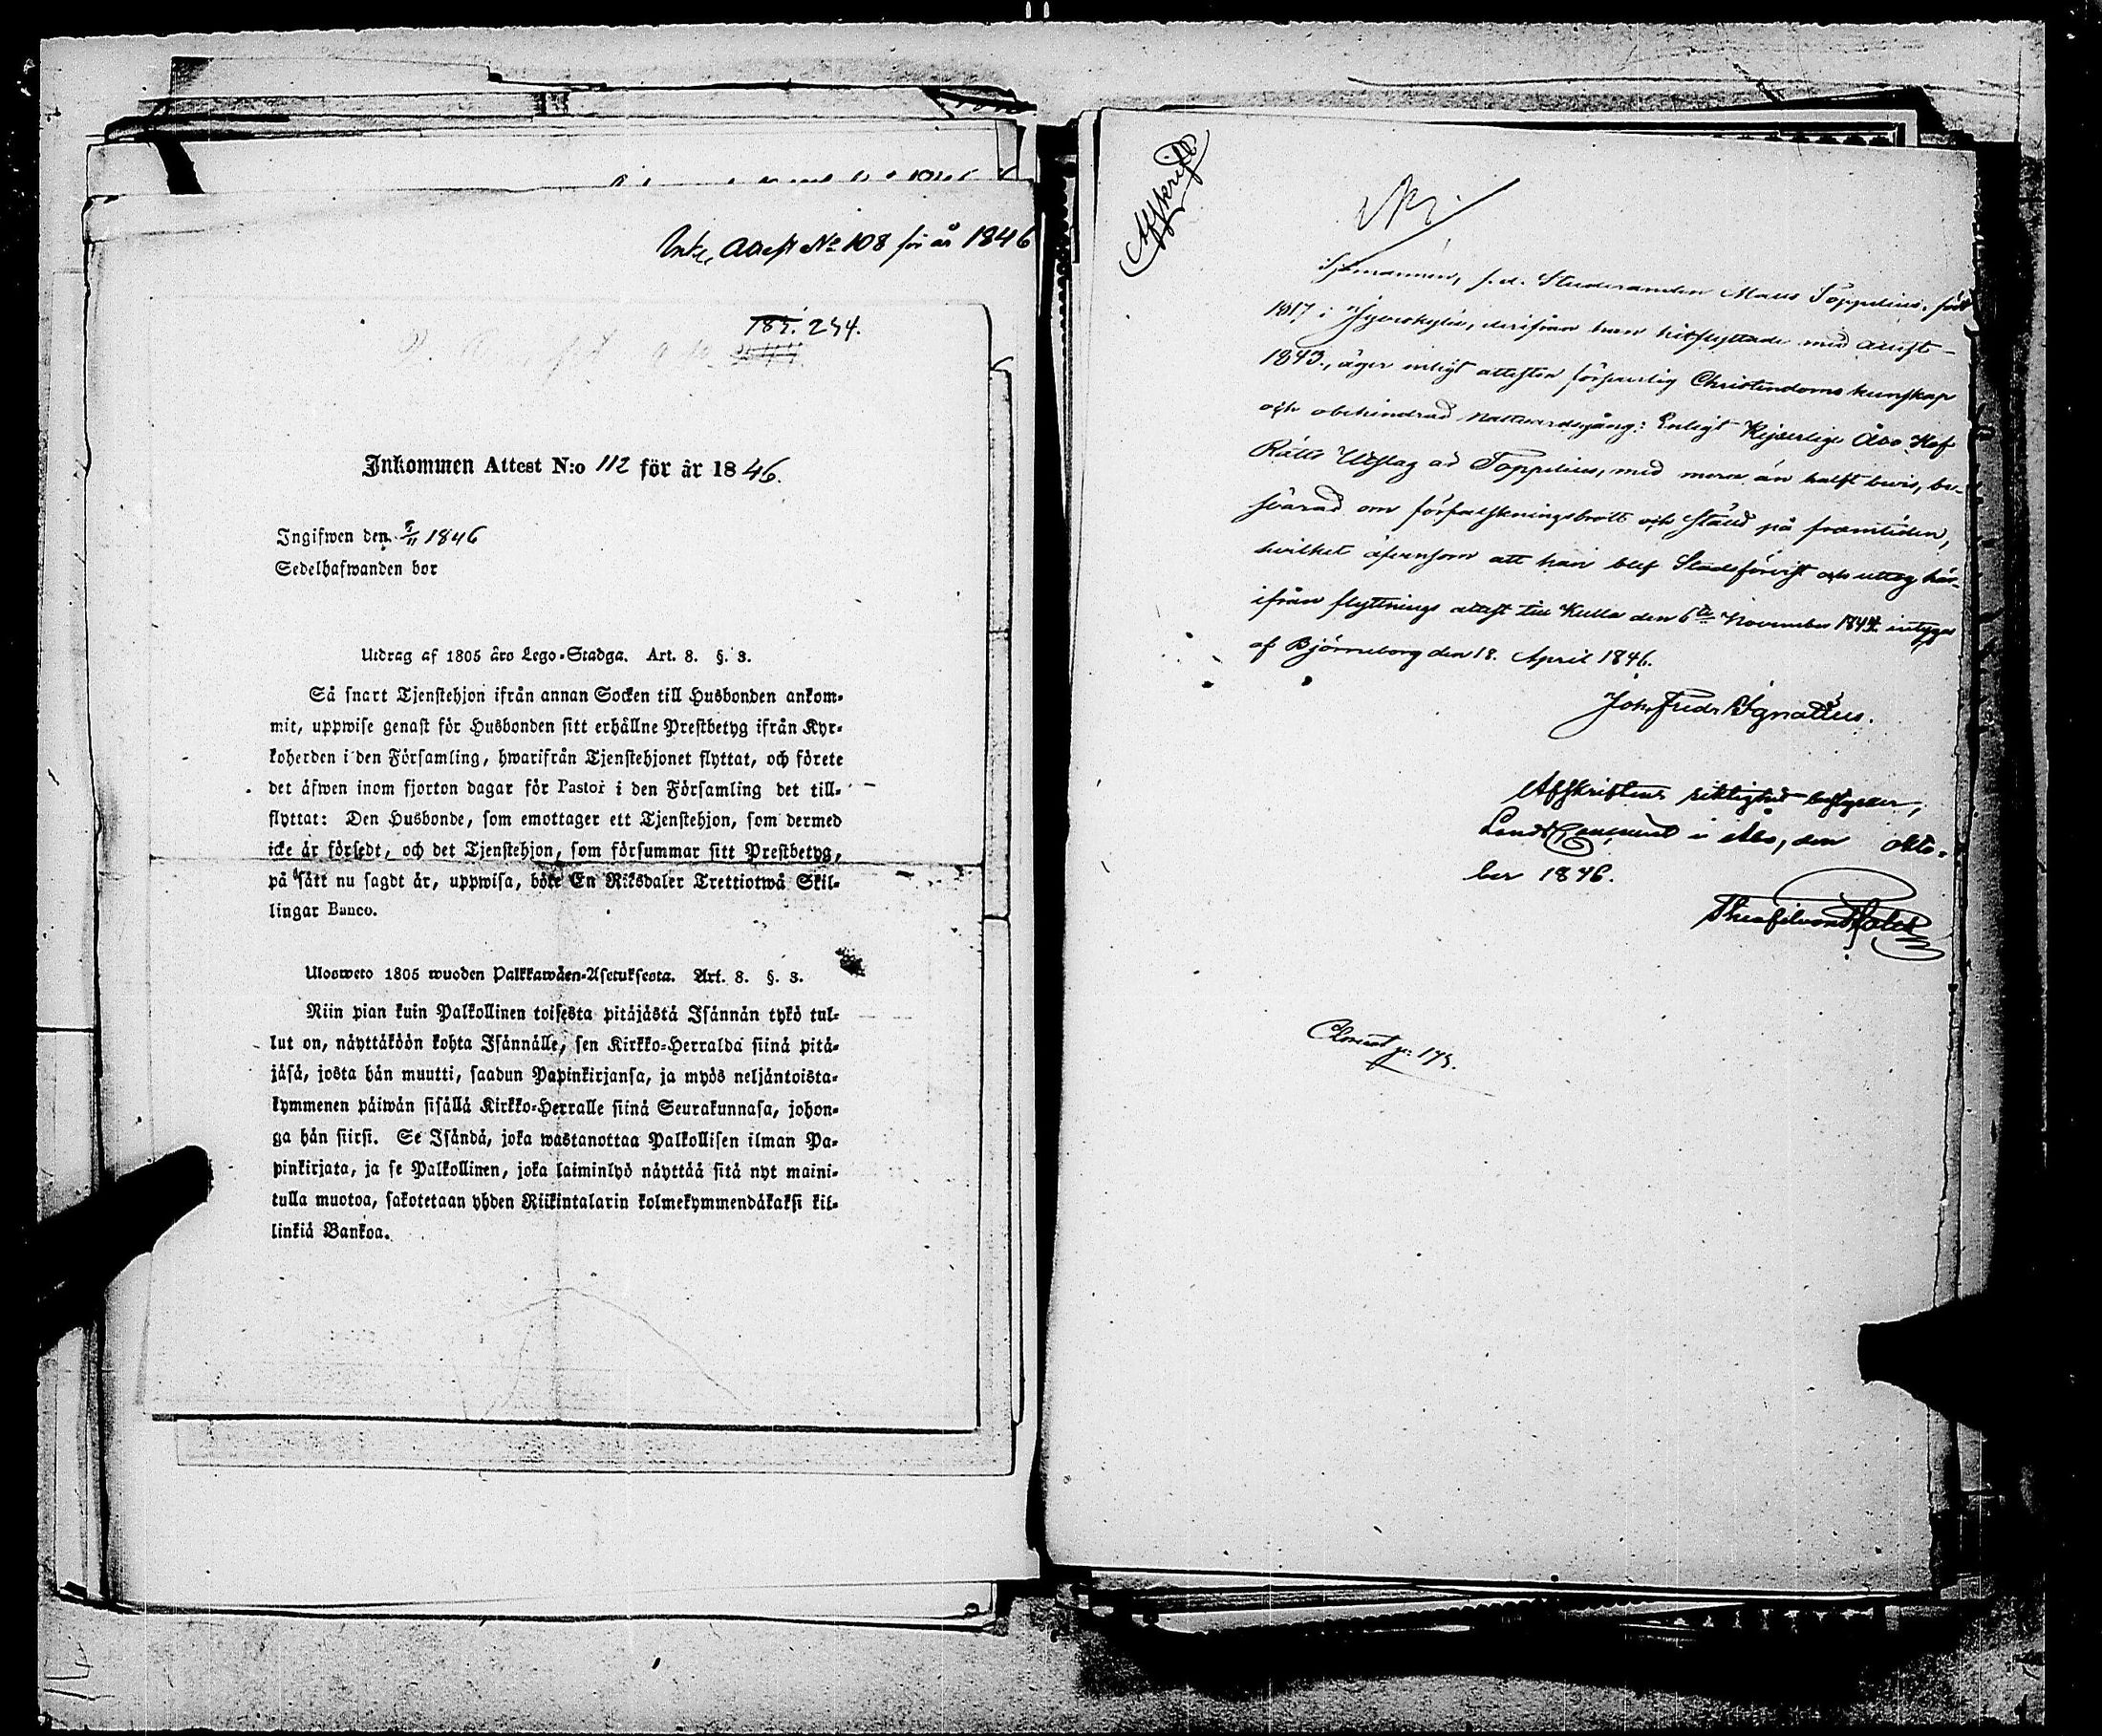 Ink. Attest No 108 för år 1846
183. 234.
Inkommen Attest N:o 112 för år 1846.
Ingifwen den 1846
Sedelhafwanden bor
Utdrag af 1805 års Lego-Stadga. Art. 8. §. 3.
Så snart Tjenstehjon ifrån annan Socken till Husbonden ankom-
mit, uppwise genast för Husbonden sitt erhållne Prestbetyg ifrån Kyr-
koherden i den Församling, hwarifrån Tjenstehjonet flyttat, och förete
det äfwen inom fjorton dagar för Pastor i den Församling det till-
flyttat: Den Husbonde, som emottager ett Tjenstehjon, som dermed
icke är försedt, och det Tjenstehjon, som försummar sitt Prestbetyg,
på sätt nu sagdt är, uppwisa, böte En Riksdaler Trettiotwå Skil-
lingar Banco.
Ulosweto 1805 wuoden Palkkawäen-Asetuksesta. Art. 8. §. 3.
Niin pian kuin Palkollinen toisesta pitäjästä Isännän tykö tul-
lut on, näyttäköön kohta Isännälle, sen Kirkko-Herralda siinä pitä-
jäsä, josta hän muutti, saadun Papinkirjansa, ja myös neljäntoista-
kymmenen päiwän sisällä Kirkko-Herralle siinä Seurakunnasa, johon-
ga hän siirsi. Se Isändä, joka wastanottaa Palkollisen ilman Pa-
pinkirjata, ja se Palkollinen, joka laiminlyö näyttää sitä nyt maini-
tulla muotoa, sakotetaan yhden Riikintalarin kolmekymmendäkaksi kil-
linkiä Bankoa.
Afskrift
Sjömannen, f.d. Studeranden Mats Toppelius, född
1817 i derifrån han hitflyttade med attest
1843, äger enligt attesten försvarlig Christendoms kunskap
och obehindrad nattvardsgång: Enligt Kejserlige Åbo Hof
Rätts Utslag är Toppelius, med mera än halft bevis, be-
svärad om förfalskningsbrott och ställd på framtiden,
hvilket äfvensom att han blef Stadsförvist och uttog här-
ifrån flyttnings attest till Kulla den 6te November 1844 intygas
af Björneborg den 18. April 1846.
Joh. Fredr. Ignatius.
Afskriftens riktighet bestyrker,
Lands Cancellied i Åbo, den Okto-
ber 1846.